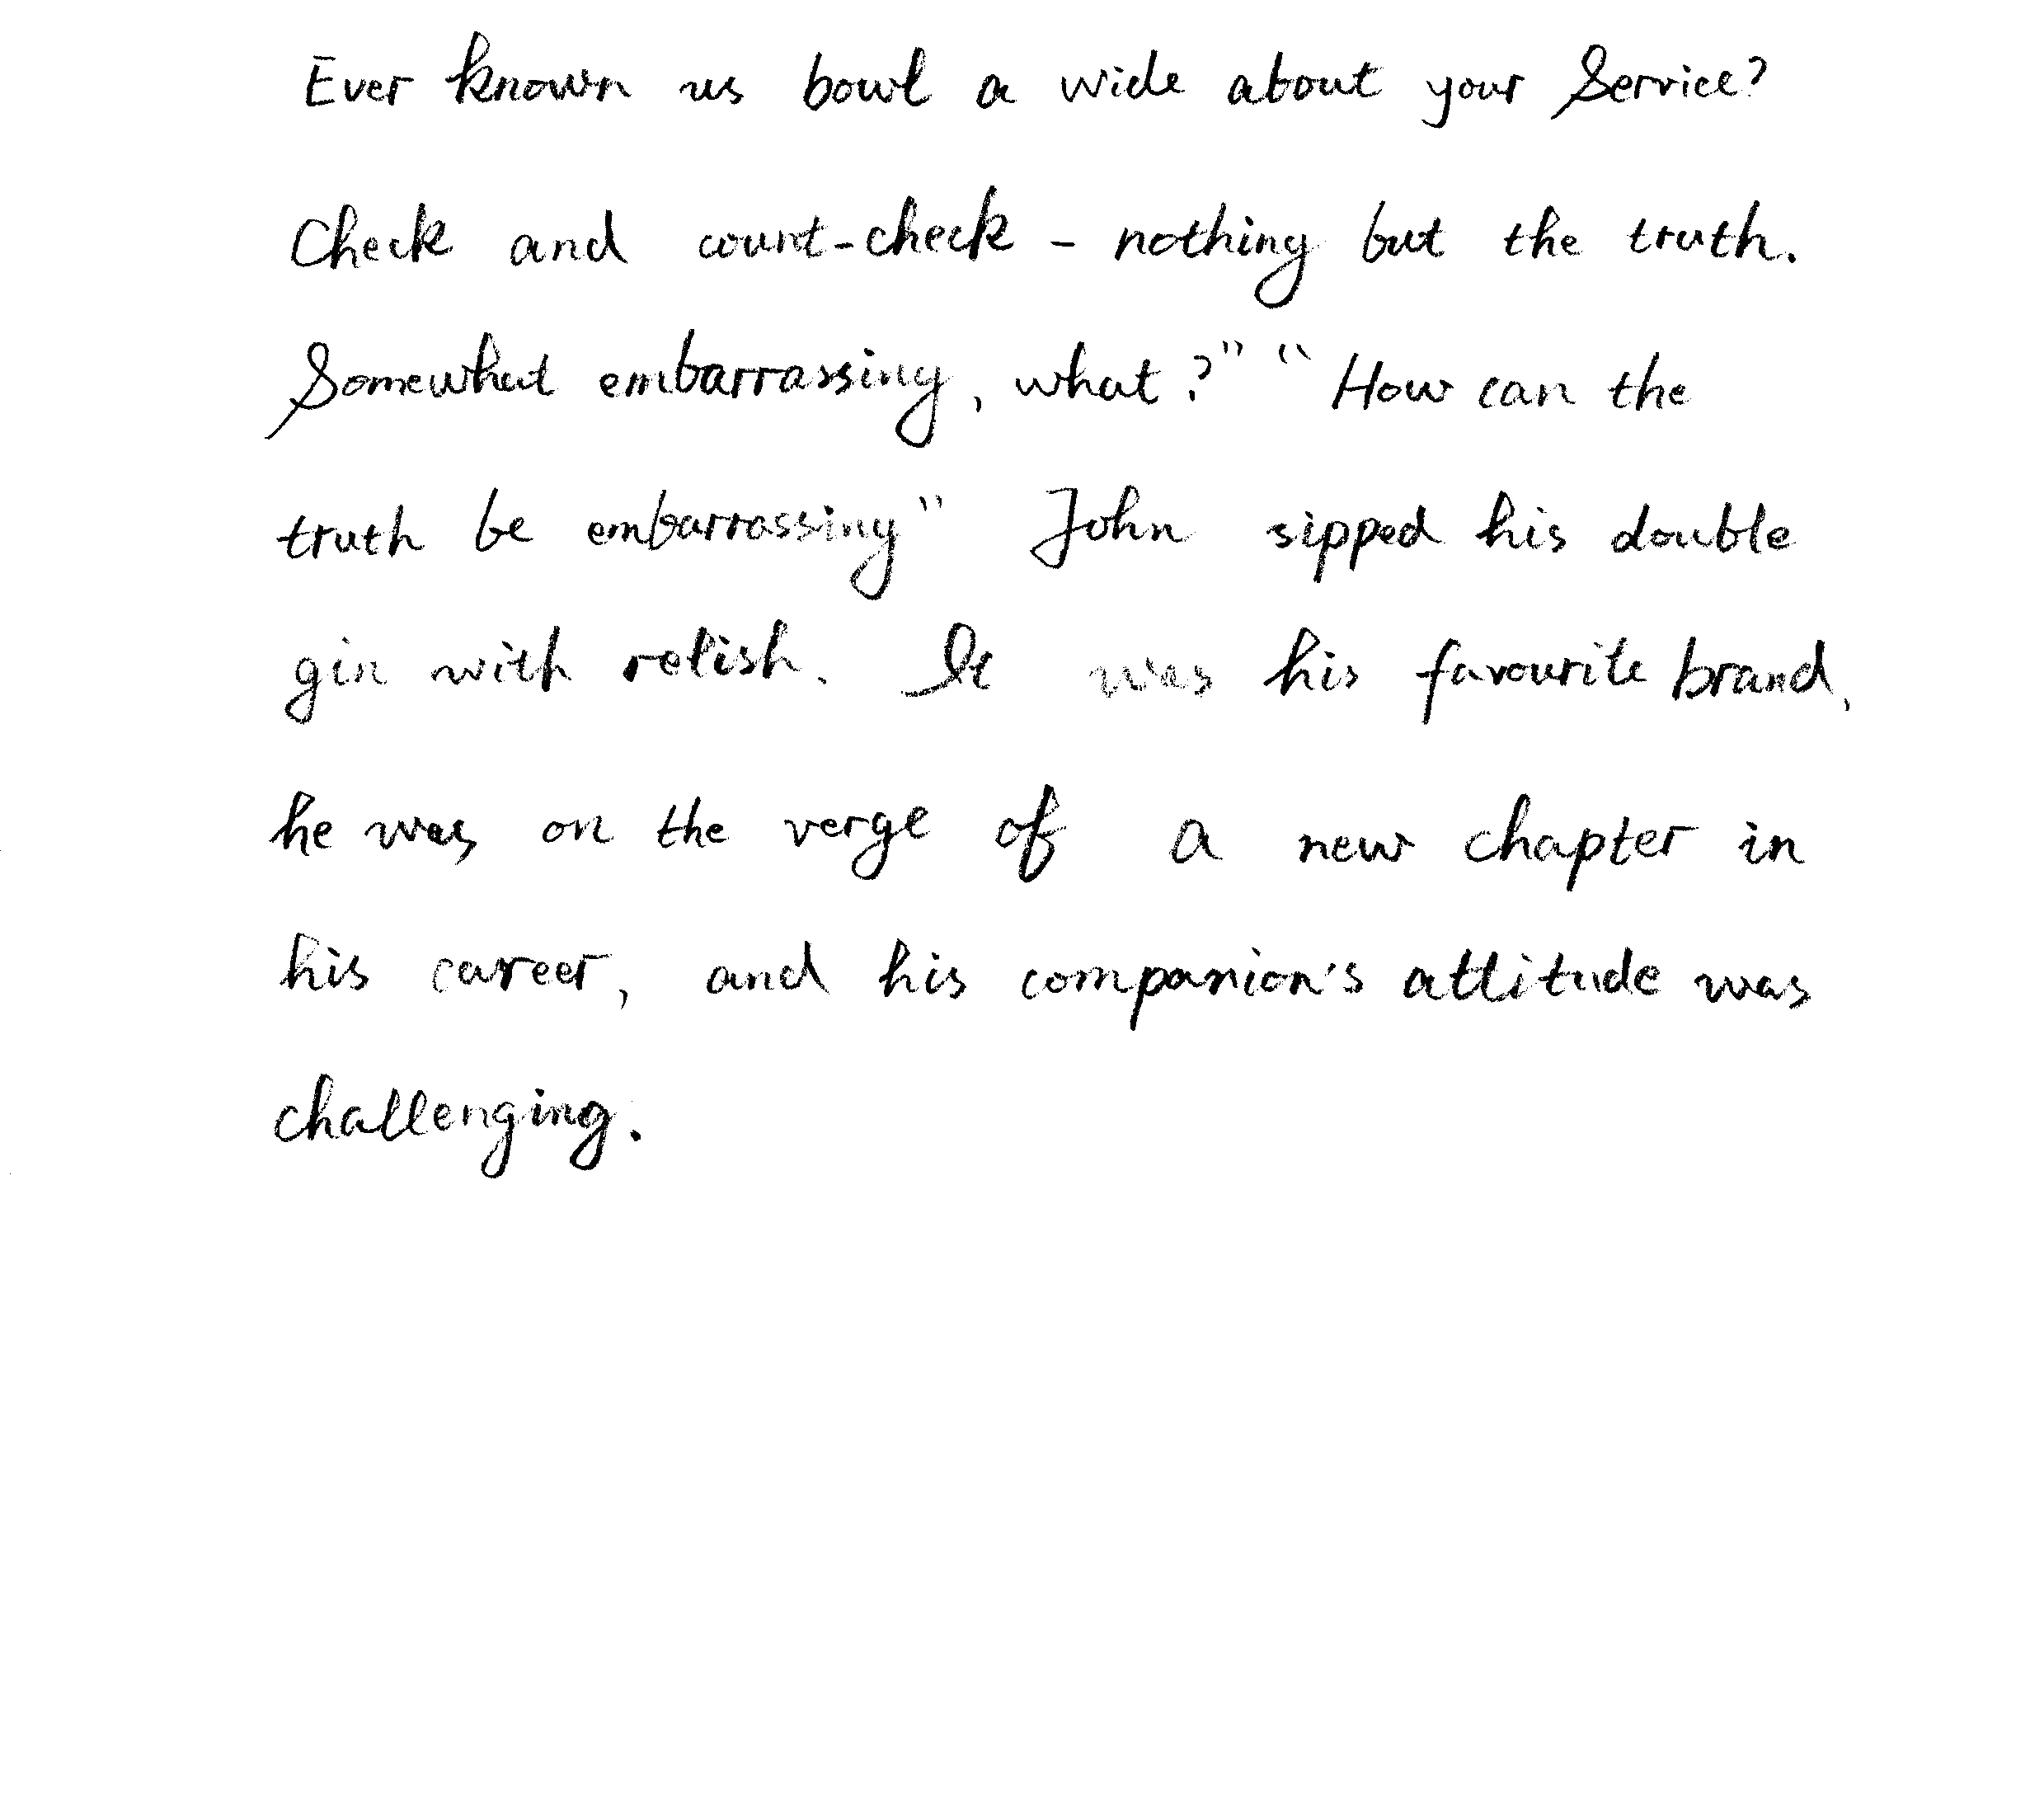 Ever known us bowl a wide about your Service?
Check and count-check - nothing but the truth.
Somewhat embarrassing, what?" "How can the
truth be embarrassing" John sipped his double
gin with relish. It was his favourite brand,
he was on the verge of a new chapter in
his career, and his companion's attitude was
challenging.